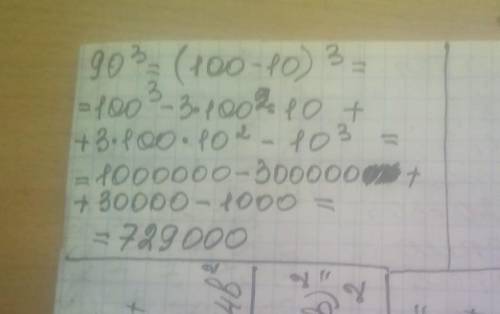 90³ = (100 - 10)³ =
= 100³ - 3·100²·10 +
+ 3·100·10² - 10³ =
= 1000000 - 300000 +
+ 30000 - 1000 =
= 729000
4b²